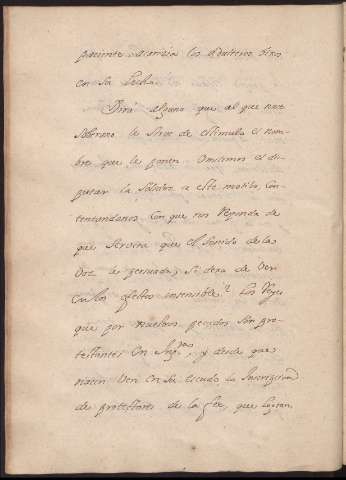 paciente acaricia los adulteros hijos
en su lecho.
Dirá alguno que al que nace
soberano le sirve de estimulo el nom-
bre que le ponen. Omitimos el dis-
putar la solidez a este motibo, con-
tentandonos con que nos responda de
que servira que el sonido de la
voz le persuada, si dexa de ver
en los efectos insensible? Los Reyes
que por nuestros pecados son pro-
testantes en Ing.ra, y desde que
nacen ven en su escudo la Inscripcion
de protectores de la fee, que logran